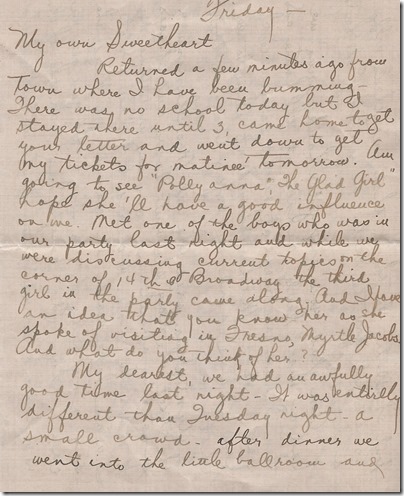 Friday —
My own Sweetheart
Returned a few minutes ago from
town where I have been bumming.
There was no school today but I
stayed there until 3, came home to get
your letter and went down to get
my tickets for matineé tomorrow. Am
going to see "Pollyanna", The Glad Girl"
hope she'll have a good influence
on me. Met one of the boys who was in
our party last night and while we
were discussing current topics on the
corner of 14th & Broadway the third
girl in the party came along. And I have
an idea that you know her as she
spoke of visiting in Fresno, Myrtle Jacobs.
And what do you think of her?
My dearest, we had an awfully
good time last night - It was entirely
different than Tuesday night - a
small crowd - after dinner we
went into the little ballroom and